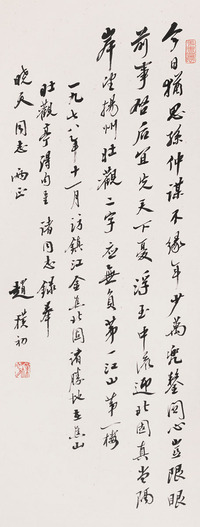 今日犹思孫仲謀不緣年少萬兜鍪同心豈限眼
前事啓后宜先天下憂浮玉中流迎北固真當隔
岸望揚州壯觀二字應無負第一江山第一樓
一九七八年十一月訪鎮江金焦北固諸勝地在焦山
壯觀亭得句呈諸同志錄奉
曉天同志兩正
趙樸初